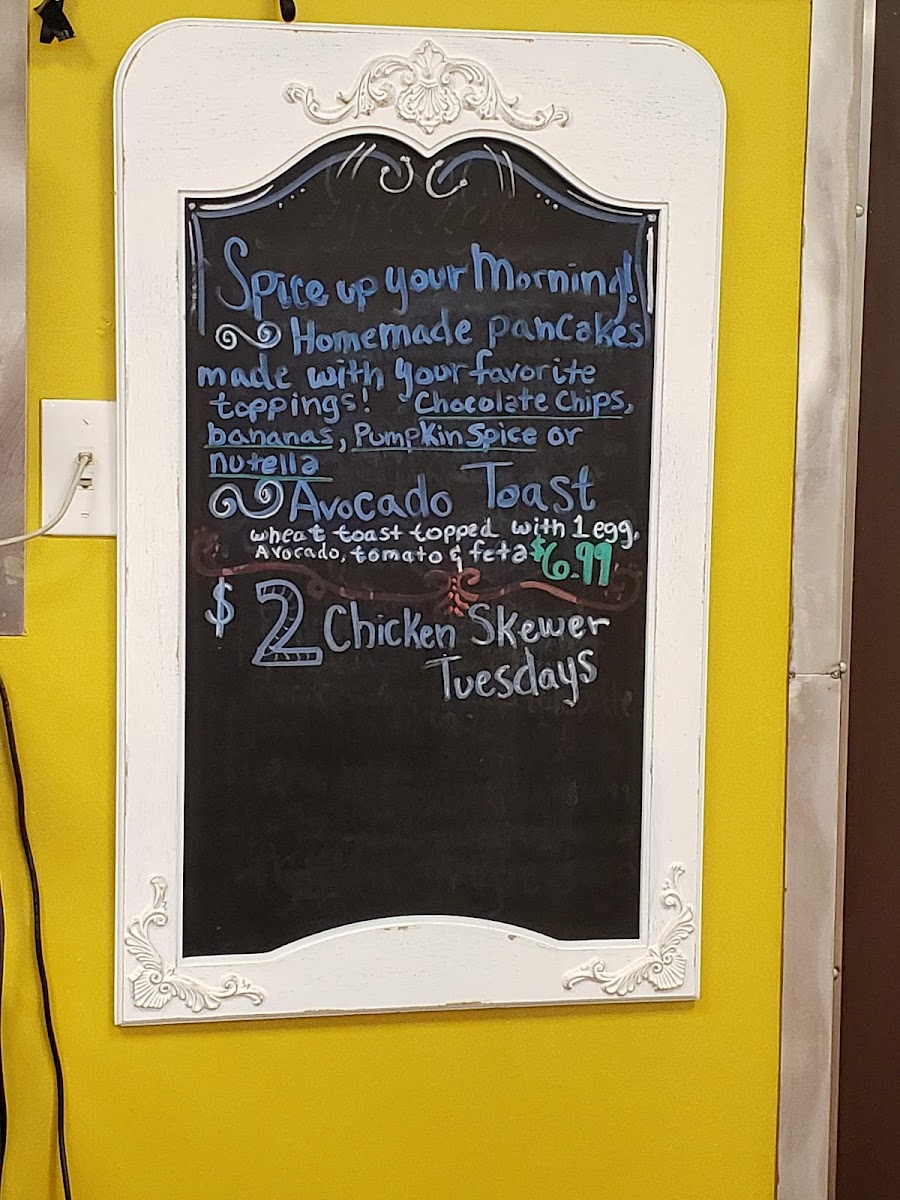 Spice up your Morning!
Homemade pancakes
made with your favorite
toppings! Chocolate chips,
bananas, Pumpkin Spice or
nutella
Avocado Toast
wheat toast topped with 1 egg,
Avocado, tomato & feta $6.99
$2 Chicken Skewer
Tuesdays